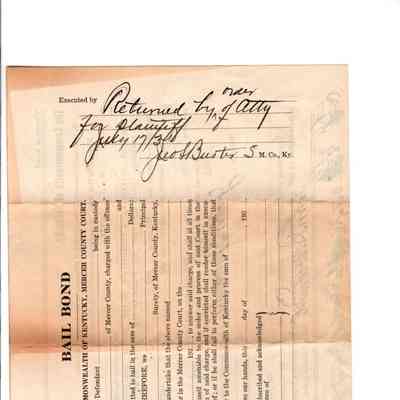 Executed by Returned by order of Atty
for plaintiff
July 17/30
Geo S Buster S M. Co., Ky.
BAIL BOND
MONWEALTH OF KENTUCKY, MERCER COUNTY COURT.
Defendant being in custody
of Mercer County, charged with the offence
and
tted to bail in the sum of Dollars
REFORE, we Principal
Surety, of Mercer County, Kentucky,
ndertake that the above named
d in the Mercer County Court, on the
192 to answer said charge, and shall at all times
nself amenable to the order and process of said Court in the
of said charge, and if convicted shall render himself in execu-
of; or if he shall fail to perform either of these conditions, that
to the Commonwealth of Kentucky the sum of
our hands, this day of 192
bscribed and acknowledged
me of